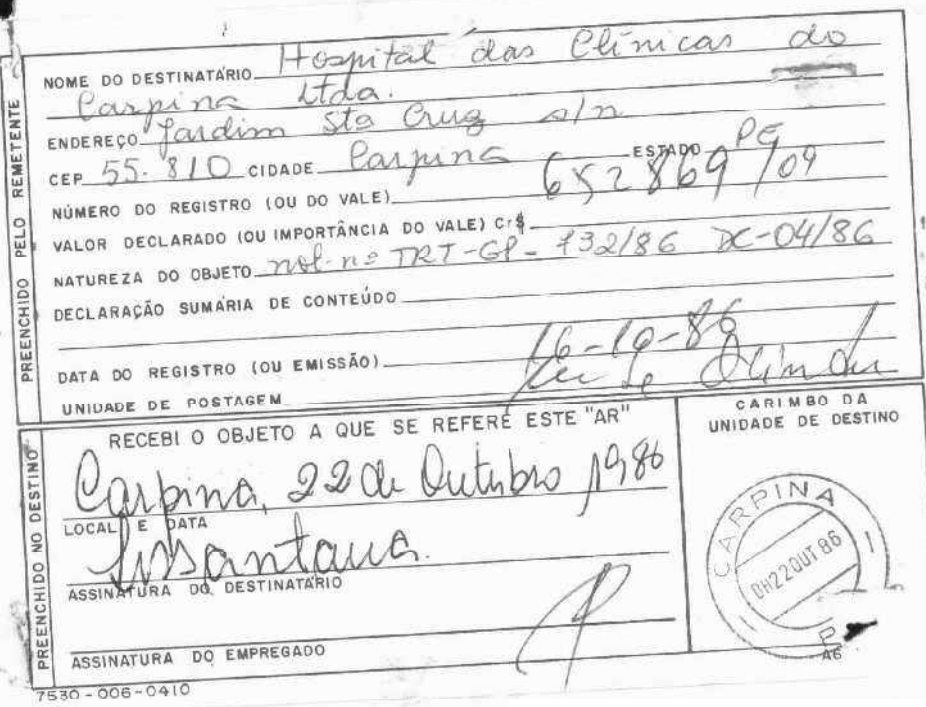 NOME DO DESTINATÁRIO Hospital das Clínicas do
Carpina Ltda.
ENDEREÇO Jardim Sta Cruz s/n
CEP 55.810 CIDADE Carpina ESTADO PE
NÚMERO DO REGISTRO (OU DO VALE) 652869/09
VALOR DECLARADO (OU IMPORTÂNCIA DO VALE) Cr$
NATUREZA DO OBJETO not. nº TRT-GP- 732/86 DC-04/86
DECLARAÇÃO SUMÁRIA DE CONTEÚDO
DATA DO REGISTRO (OU EMISSÃO) 16-10-86
UNIDADE DE POSTAGEM
PREENCHIDO PELO REMETENTE
RECEBI O OBJETO A QUE SE REFERE ESTE "AR"
Carpina, 22 de Outubro 1986
LOCAL E DATA
ASSINATURA DO DESTINATÁRIO
ASSINATURA DO EMPREGADO
PREENCHIDO NO DESTINO
CARIMBO DA
UNIDADE DE DESTINO
CARPINA
DH22OUT 86
7530-006-0410